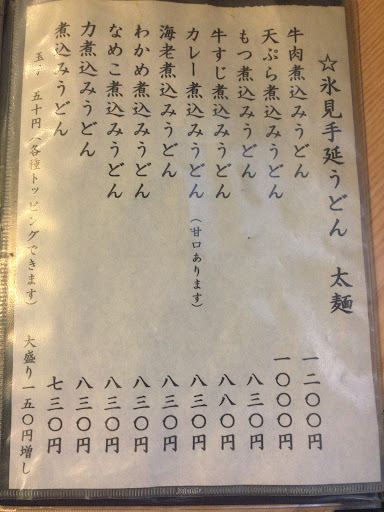 ☆氷見手延うどん 太麺
牛肉煮込みうどん 一二〇〇円
天ぷら煮込みうどん 一〇〇〇円
もつ煮込みうどん 八三〇円
牛すじ煮込みうどん 八八〇円
カレー煮込みうどん(甘口あります) 八三〇円
海老煮込みうどん 八三〇円
わかめ煮込みうどん 八三〇円
なめこ煮込みうどん 八三〇円
力煮込みうどん 八三〇円
煮込みうどん 七三〇円
玉子 五十円(各種トッピングできます) 大盛り一五〇円増し